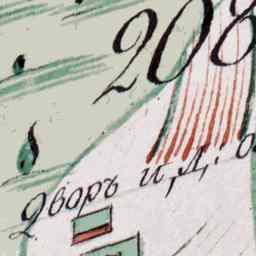 208
Дворъ и, Д: о